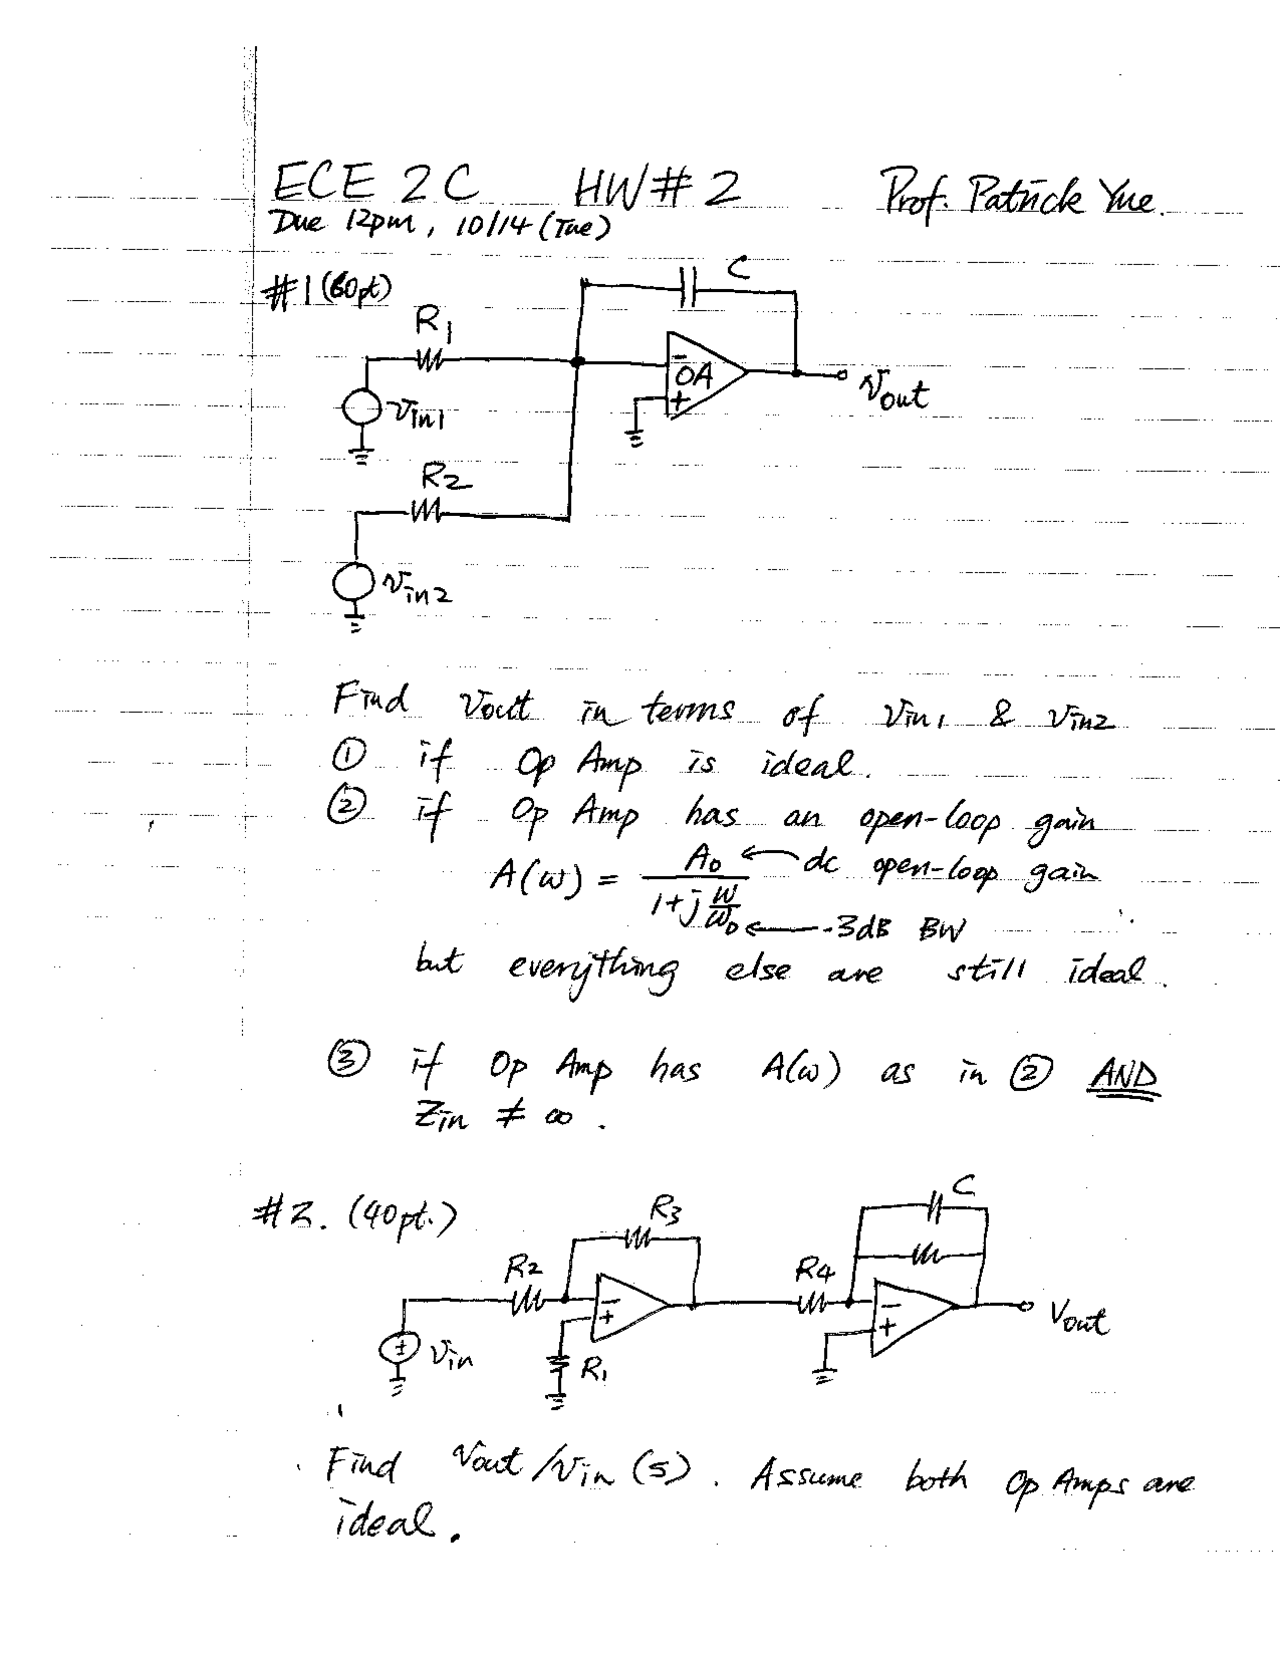 ECE 2C HW# 2 Prof. Patrick Yue.
Due 12pm, 10/14 (Tue)
#1 (60pt)
C
R1
- OA +
vout
vin1
R2
vin2
Find vout in terms of vin1 & vin2
① if Op Amp is ideal.
② if Op Amp has an open-loop gain
A(ω) = A0 / (1+j ω/ω0) ← dc open-loop gain
← -3dB BW
but everything else are still ideal.
③ if Op Amp has A(ω) as in ② AND
Zin ≠ ∞.
#2. (40pt.)
C
R3
R2
R4
- +
- +
Vout
± vin
R1
Find vout/vin (s). Assume both Op Amps are
ideal.